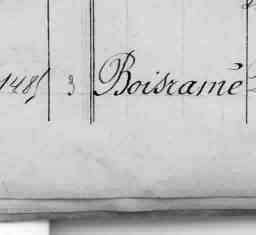 1485 3 Boisramé